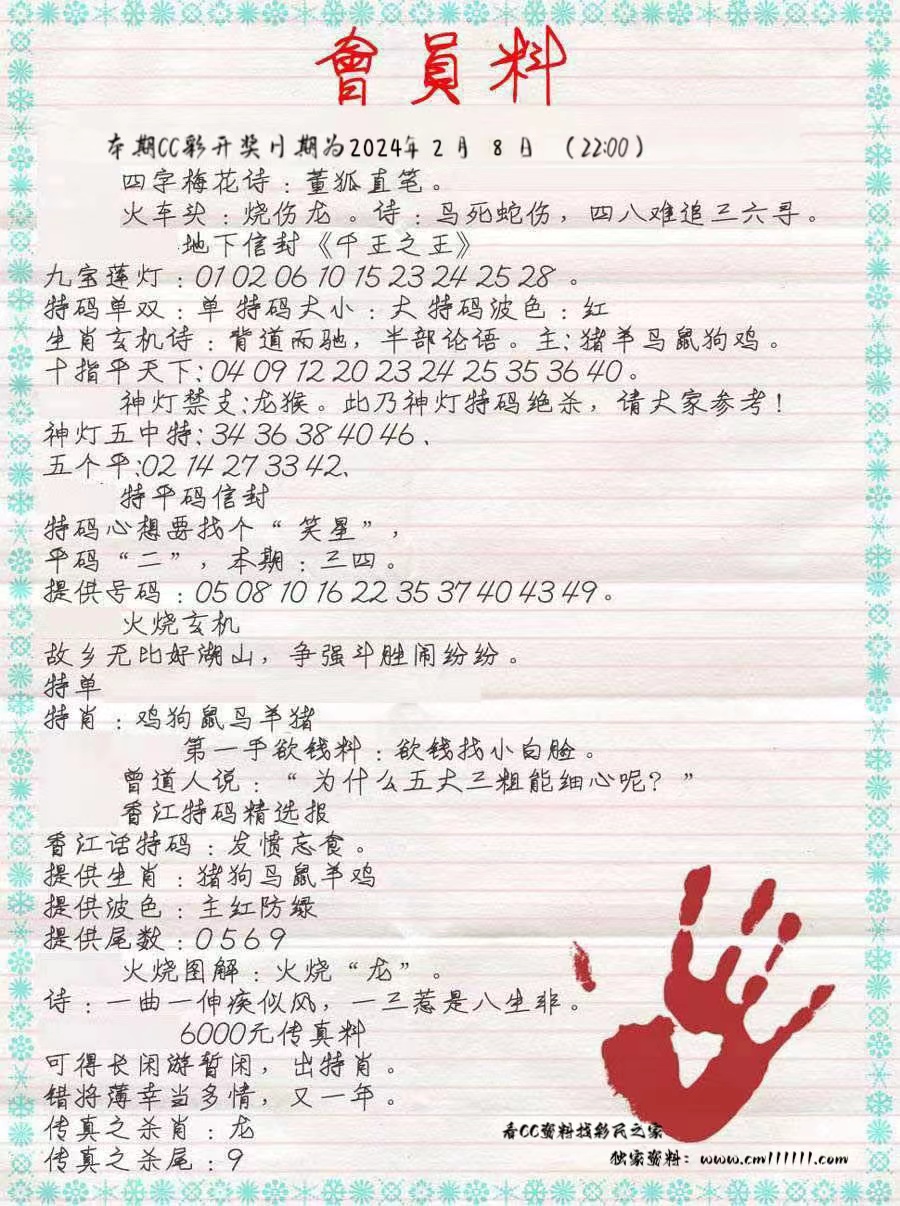 會員料
本期CC彩开奖日期为2024年2月8日（22:00）
四字梅花诗：董狐直笔。
火车头：烧伤龙。诗：鸟死蛇伤，四八难追三六寻。
地下信封《千王之王》
九宝莲灯：01 02 06 10 15 23 24 25 28 。
特码单双：单 特码大小：大 特码波色：红
生肖玄机诗：背道而驰，半部论语。主:猪羊马鼠狗鸡。
十指平天下:04 09 12 20 23 24 25 35 36 40。
神灯禁支:龙猴。此乃神灯特码绝杀，请大家参考！
神灯五中特:34 36 38 40 46、
五个平:02 14 27 33 42、
特平码信封
特码心想要找个“笑星”，
平码“二”，本期：三四。
提供号码：05 08 10 16 22 35 37 40 43 49。
火烧玄机
故乡无比好湖山，争强斗胜闹纷纷。
特单
特肖：鸡狗鼠马羊猪
第一手欲钱料：欲钱找小白脸。
曾道人说：“为什么五大三粗能细心呢？”
香江特码精选报
香江话特码：发愤忘食。
提供生肖：猪狗马鼠羊鸡
提供波色：主红防绿
提供尾数：0 5 6 9
火烧图解：火烧“龙”。
诗：一曲一伸疾似风，一三惹是八生非。
6000元传真料
可得长闲游暂闲，出特肖。
错将薄幸当多情，又一年。
传真之杀肖：龙
传真之杀尾：9
看CC资料找彩民之家
独家资料：www.cm111111.com